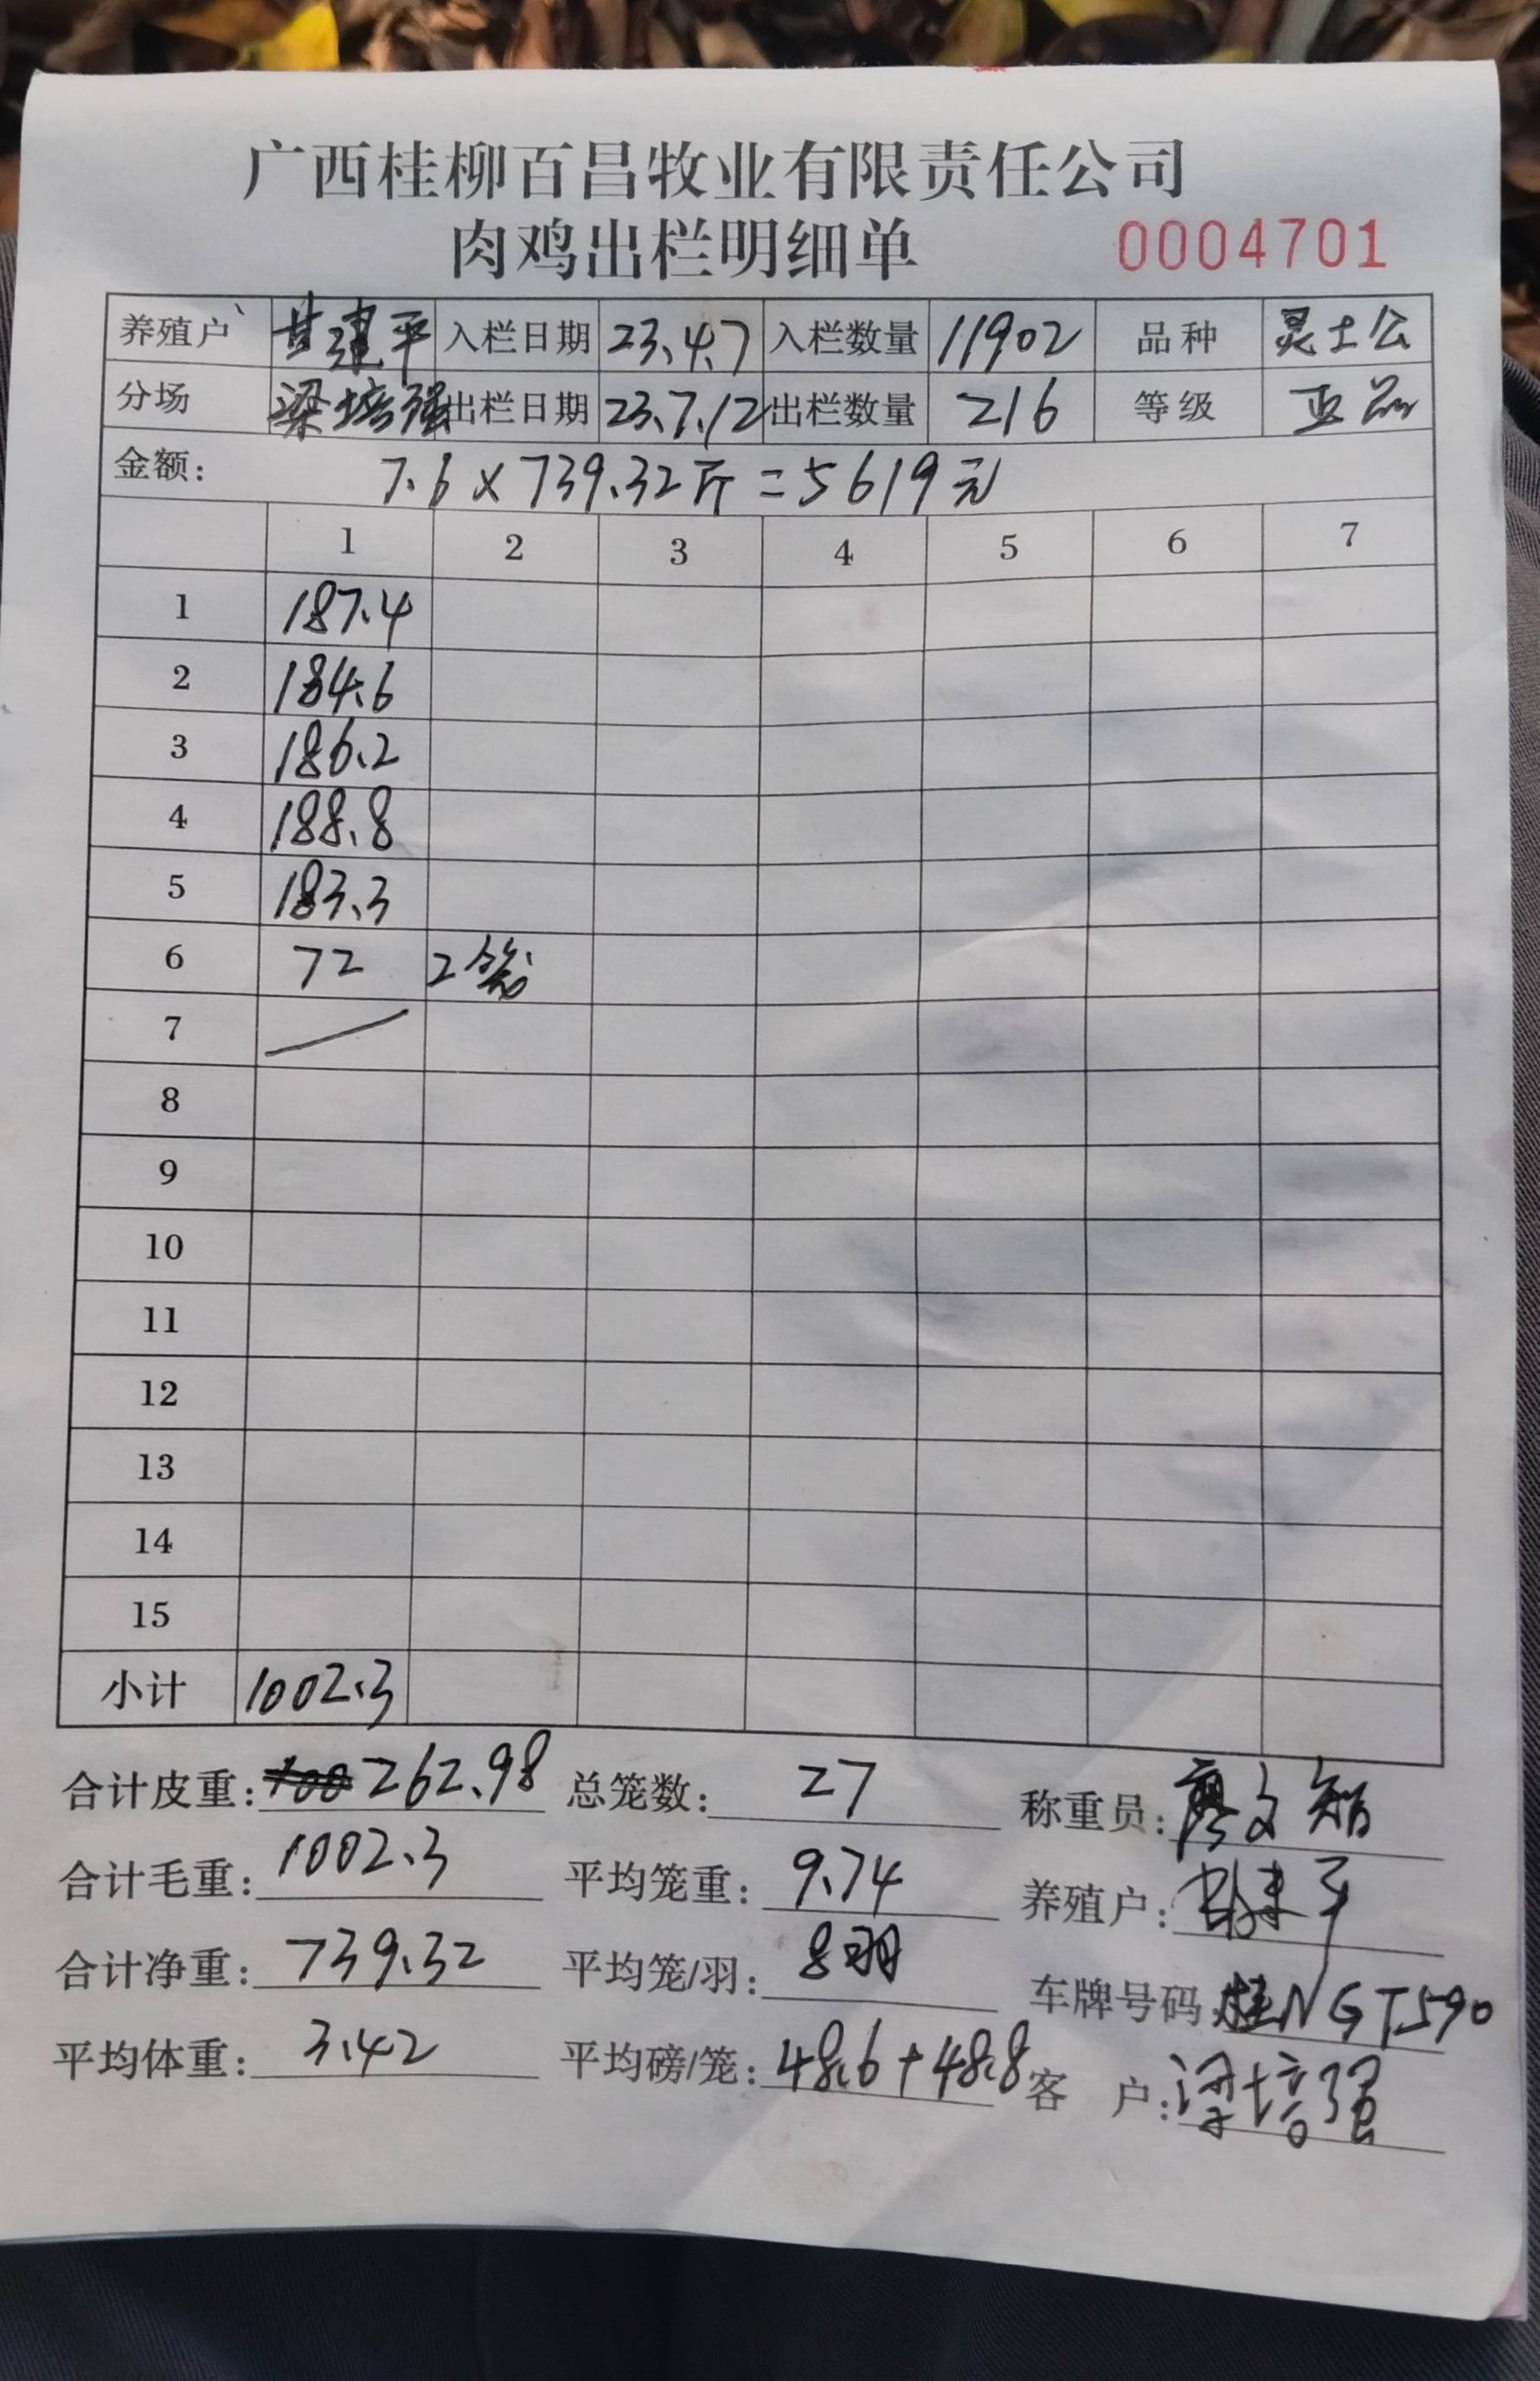 广西桂柳百昌牧业有限责任公司
肉鸡出栏明细单 0004701
养殖户 甘建平 入栏日期 23.4.7 入栏数量 11902 品种 灵土公
分场 梁培强 出栏日期 23.7.12 出栏数量 216 等级 亚品
金额: 7.6×739.32斤=5619元
1 2 3 4 5 6 7
1 187.4
2 184.6
3 186.2
4 188.8
5 183.3
6 72 2笼
7
8
9
10
11
12
13
14
15
小计 1002.3
合计皮重: 262.98 总笼数: 27 称重员: 廖文智
合计毛重: 1002.3 平均笼重: 9.74 养殖户: 甘建平
合计净重: 739.32 平均笼/羽: 8羽 车牌号码: 桂NGT590
平均体重: 3.42 平均磅/笼: 48.6+48.8 客 户: 梁培强